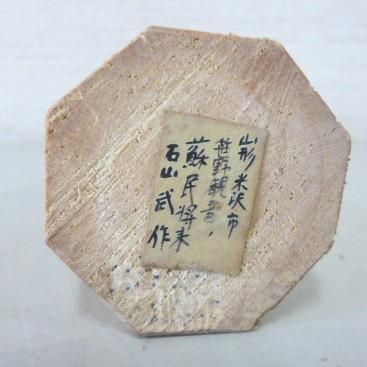 山形 米沢市
笹野観音,
蘇民将来
石山武作